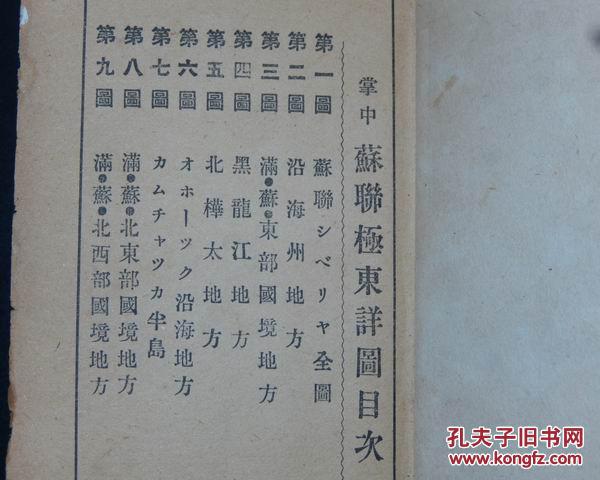 掌中 蘇聯極東詳圖目次
第一圖 蘇聯シベリヤ全圖
第二圖 沿海州地方
第三圖 滿・蘇・東部國境地方
第四圖 黑龍江地方
第五圖 北樺太地方
第六圖 オホーツク沿海地方
第七圖 カムチャツカ半島
第八圖 滿・蘇・北東部國境地方
第九圖 滿・蘇・北西部國境地方
孔夫子旧书网
www.kongfz.com